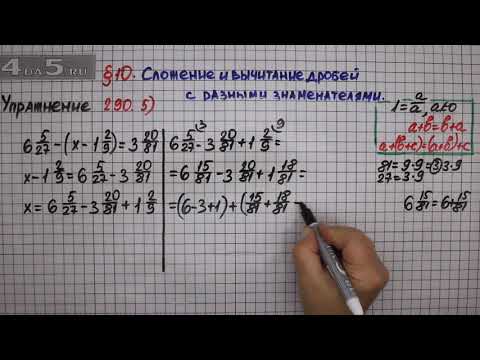 4DA5.RU
§10. Сложение и вычитание дробей
с разными знаменателями.
Упражнение 290. 5)
1 = a/a, a≠0
a+b=b+a
a+(b+c)=(a+b)+c
6 5/27 − (x − 1 2/9) = 3 20/81
x − 1 2/9 = 6 5/27 − 3 20/81
x = 6 5/27 − 3 20/81 + 1 2/9
6 5/27 ³⁾ − 3 20/81 + 1 2/9 ⁹⁾ =
= 6 15/81 − 3 20/81 + 1 18/81 =
= (6−3+1) + (15/81 + 18/81 −
81 = 9·9 = 3·3·9
27 = 3·9
6 15/81 = 6 + 15/81